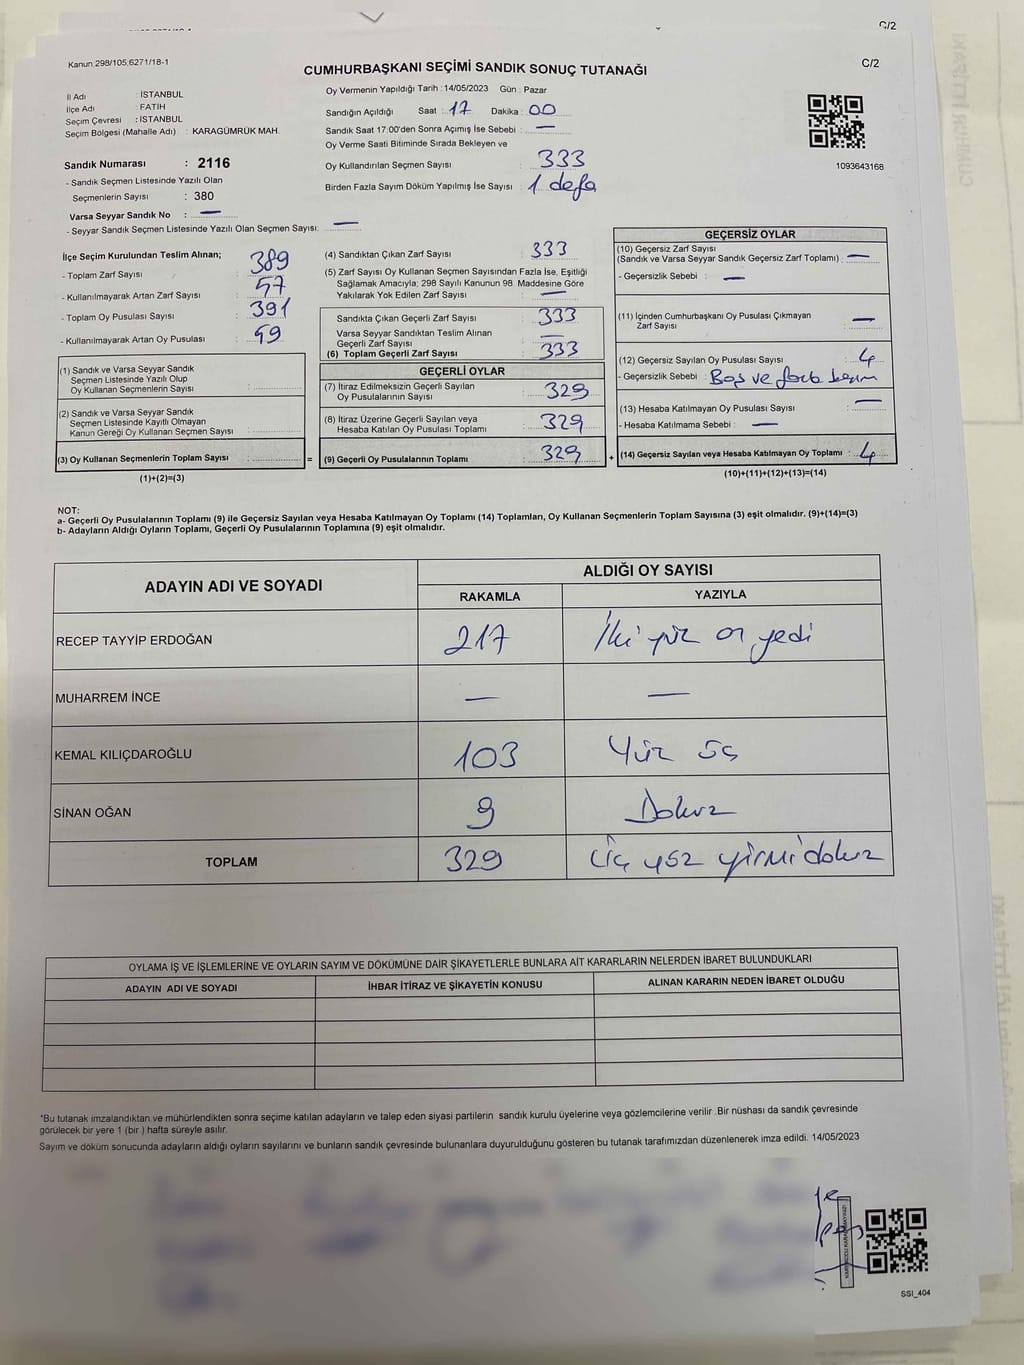 C/2
Kanun 298/105,6271/18-1
C/2
CUMHURBAŞKANI SEÇİMİ SANDIK SONUÇ TUTANAĞI
İl Adı : İSTANBUL
İlçe Adı : FATİH
Seçim Çevresi : İSTANBUL
Seçim Bölgesi (Mahalle Adı) : KARAGÜMRÜK MAH.
Sandık Numarası : 2116
- Sandık Seçmen Listesinde Yazılı Olan
Seçmenlerin Sayısı : 380
Varsa Seyyar Sandık No : —
- Seyyar Sandık Seçmen Listesinde Yazılı Olan Seçmen Sayısı: —
Oy Vermenin Yapıldığı Tarih : 14/05/2023 Gün : Pazar
Sandığın Açıldığı Saat : 17 Dakika : 00
Sandık Saat 17:00'den Sonra Açımış İse Sebebi : —
Oy Verme Saati Bitiminde Sırada Bekleyen ve
Oy Kullandırılan Seçmen Sayısı : 333
Birden Fazla Sayım Döküm Yapılmış İse Sayısı : 1 defa
1093643168
İlçe Seçim Kurulundan Teslim Alınan;
- Toplam Zarf Sayısı : 389
- Kullanılmayarak Artan Zarf Sayısı : 57
- Toplam Oy Pusulası Sayısı : 391
- Kullanılmayarak Artan Oy Pusulası : 59
(1) Sandık ve Varsa Seyyar Sandık
Seçmen Listesinde Yazılı Olup
Oy Kullanan Seçmenlerin Sayısı :
(2) Sandık ve Varsa Seyyar Sandık
Seçmen Listesinde Kayıtlı Olmayan
Kanun Gereği Oy Kullanan Seçmen Sayısı :
(3) Oy Kullanan Seçmenlerin Toplam Sayısı : =
(1)+(2)=(3)
(4) Sandıktan Çıkan Zarf Sayısı : 333
(5) Zarf Sayısı Oy Kullanan Seçmen Sayısından Fazla İse, Eşitliği
Sağlamak Amacıyla; 298 Sayılı Kanunun 98. Maddesine Göre
Yakılarak Yok Edilen Zarf Sayısı : —
Sandıkta Çıkan Geçerli Zarf Sayısı : 333
Varsa Seyyar Sandıktan Teslim Alınan
Geçerli Zarf Sayısı : —
(6) Toplam Geçerli Zarf Sayısı : 333
GEÇERLİ OYLAR
(7) İtiraz Edilmeksizin Geçerli Sayılan
Oy Pusulalarının Sayısı : 329
(8) İtiraz Üzerine Geçerli Sayılan veya
Hesaba Katılan Oy Pusulası Toplamı : 329
(9) Geçerli Oy Pusulalarının Toplamı : 329 +
GEÇERSİZ OYLAR
(10) Geçersiz Zarf Sayısı
(Sandık ve Varsa Seyyar Sandık Geçersiz Zarf Toplamı) : —
- Geçersizlik Sebebi : —
(11) İçinden Cumhurbaşkanı Oy Pusulası Çıkmayan
Zarf Sayısı : —
(12) Geçersiz Sayılan Oy Pusulası Sayısı : 4
- Geçersizlik Sebebi : Boş ve
(13) Hesaba Katılmayan Oy Pusulası Sayısı : —
- Hesaba Katılmama Sebebi : —
(14) Geçersiz Sayılan veya Hesaba Katılmayan Oy Toplamı : 4
(10)+(11)+(12)+(13)=(14)
NOT:
a- Geçerli Oy Pusulalarının Toplamı (9) ile Geçersiz Sayılan veya Hesaba Katılmayan Oy Toplamı (14) Toplamları, Oy Kullanan Seçmenlerin Toplam Sayısına (3) eşit olmalıdır. (9)+(14)=(3)
b- Adayların Aldığı Oyların Toplamı, Geçerli Oy Pusulalarının Toplamına (9) eşit olmalıdır.
ADAYIN ADI VE SOYADI ALDIĞI OY SAYISI
RAKAMLA YAZIYLA
RECEP TAYYİP ERDOĞAN 217 İki yüz on yedi
MUHARREM İNCE — —
KEMAL KILIÇDAROĞLU 103 Yüz üç
SİNAN OĞAN 9 Dokuz
TOPLAM 329 üç yüz yirmi dokuz
OYLAMA İŞ VE İŞLEMLERİNE VE OYLARIN SAYIM VE DÖKÜMÜNE DAİR ŞİKAYETLERLE BUNLARA AİT KARARLARIN NELERDEN İBARET BULUNDUKLARI
ADAYIN ADI VE SOYADI İHBAR İTİRAZ VE ŞİKAYETİN KONUSU ALINAN KARARIN NEDEN İBARET OLDUĞU
*Bu tutanak imzalandıktan ve mühürlendikten sonra seçime katılan adayların ve talep eden siyasi partilerin sandık kurulu üyelerine veya gözlemcilerine verilir .Bir nüshası da sandık çevresinde
görülecek bir yere 1 (bir ) hafta süreyle asılır.
Sayım ve döküm sonucunda adayların aldığı oyların sayılarını ve bunların sandık çevresinde bulunanlara duyurulduğunu gösteren bu tutanak tarafımızdan düzenlenerek imza edildi. 14/05/2023
SSI_404